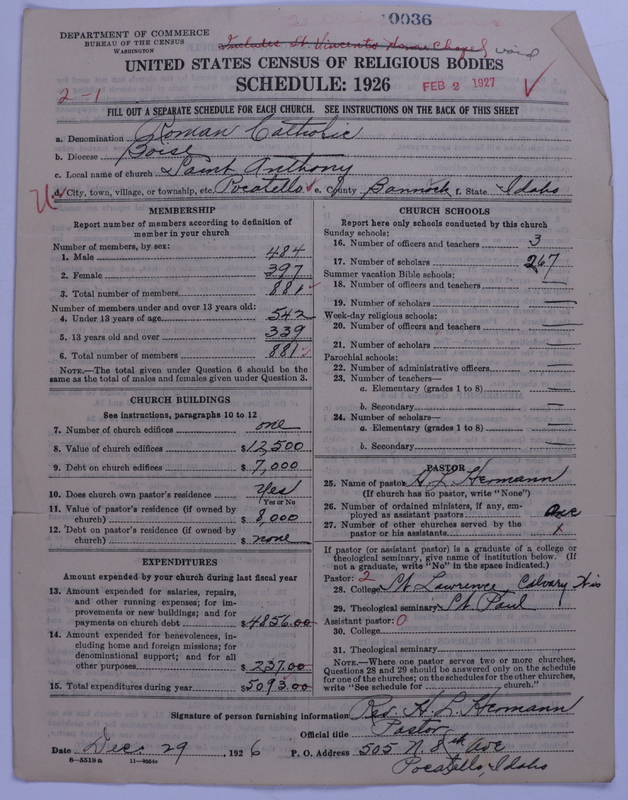 0036
DEPARTMENT OF COMMERCE
BUREAU OF THE CENSUS
WASHINGTON
Includes St Vincents Home Chapel void
UNITED STATES CENSUS OF RELIGIOUS BODIES
SCHEDULE: 1926
FEB 2 1927
2-1
FILL OUT A SEPARATE SCHEDULE FOR EACH CHURCH. SEE INSTRUCTIONS ON THE BACK OF THIS SHEET
a. Denomination Roman Catholic
b. Diocese Boise
c. Local name of church Saint Anthony
U d. City, town, village, or township, etc. Pocatello e. County Bannock f. State Idaho
MEMBERSHIP
Report number of members according to definition of
member in your church
Number of members, by sex:
1. Male 484
2. Female 397
3. Total number of members 881
Number of members under and over 13 years old:
4. Under 13 years of age 542
5. 13 years old and over 339
6. Total number of members 881
NOTE.—The total given under Question 6 should be the
same as the total of males and females given under Question 3.
CHURCH BUILDINGS
See instructions, paragraphs 10 to 12
7. Number of church edifices one
8. Value of church edifices $12,500
9. Debt on church edifices $7,000
10. Does church own pastor's residence Yes
Yes or No
11. Value of pastor's residence (if owned by
church) $8,000
12. Debt on pastor's residence (if owned by
church) $none
EXPENDITURES
Amount expended by your church during last fiscal year
13. Amount expended for salaries, repairs,
and other running expenses; for im-
provements or new buildings; and for
payments on church debt $4856.00
14. Amount expended for benevolences, in-
cluding home and foreign missions; for
denominational support; and for all
other purposes $237.00
15. Total expenditures during year $5093.00
CHURCH SCHOOLS
Report here only schools conducted by this church
Sunday schools:
16. Number of officers and teachers 3
17. Number of scholars 267
Summer vacation Bible schools:
18. Number of officers and teachers —
19. Number of scholars —
Week-day religious schools:
20. Number of officers and teachers —
21. Number of scholars —
Parochial schools:
22. Number of administrative officers —
23. Number of teachers—
a. Elementary (grades 1 to 8) —
b. Secondary —
24. Number of scholars—
a. Elementary (grades 1 to 8) —
b. Secondary —
PASTOR
25. Name of pastor H L Hermann
(If church has no pastor, write "None")
26. Number of ordained ministers, if any, em-
ployed as assistant pastors one
27. Number of other churches served by the
pastor or his assistants x
If pastor (or assistant pastor) is a graduate of a college or
theological seminary, give name of institution below. (If
not a graduate, write "No" in the space indicated.)
Pastor: 2
28. College St Lawrence Calvary Wis
29. Theological seminary St Paul
Assistant pastor: 0
30. College
31. Theological seminary
NOTE.—Where one pastor serves two or more churches,
Questions 28 and 29 should be answered only on the schedule
for one of the churches; on the schedules for the other churches,
write "See schedule for church."
Signature of person furnishing information Rev. H. L. Hermann
Official title Pastor
Date Dec. 29, 1926 P. O. Address 505 N. 8th Ave
8—5519a Pocatello, Idaho